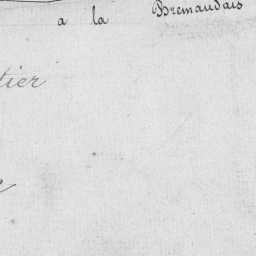 a la Bremaudais
tier